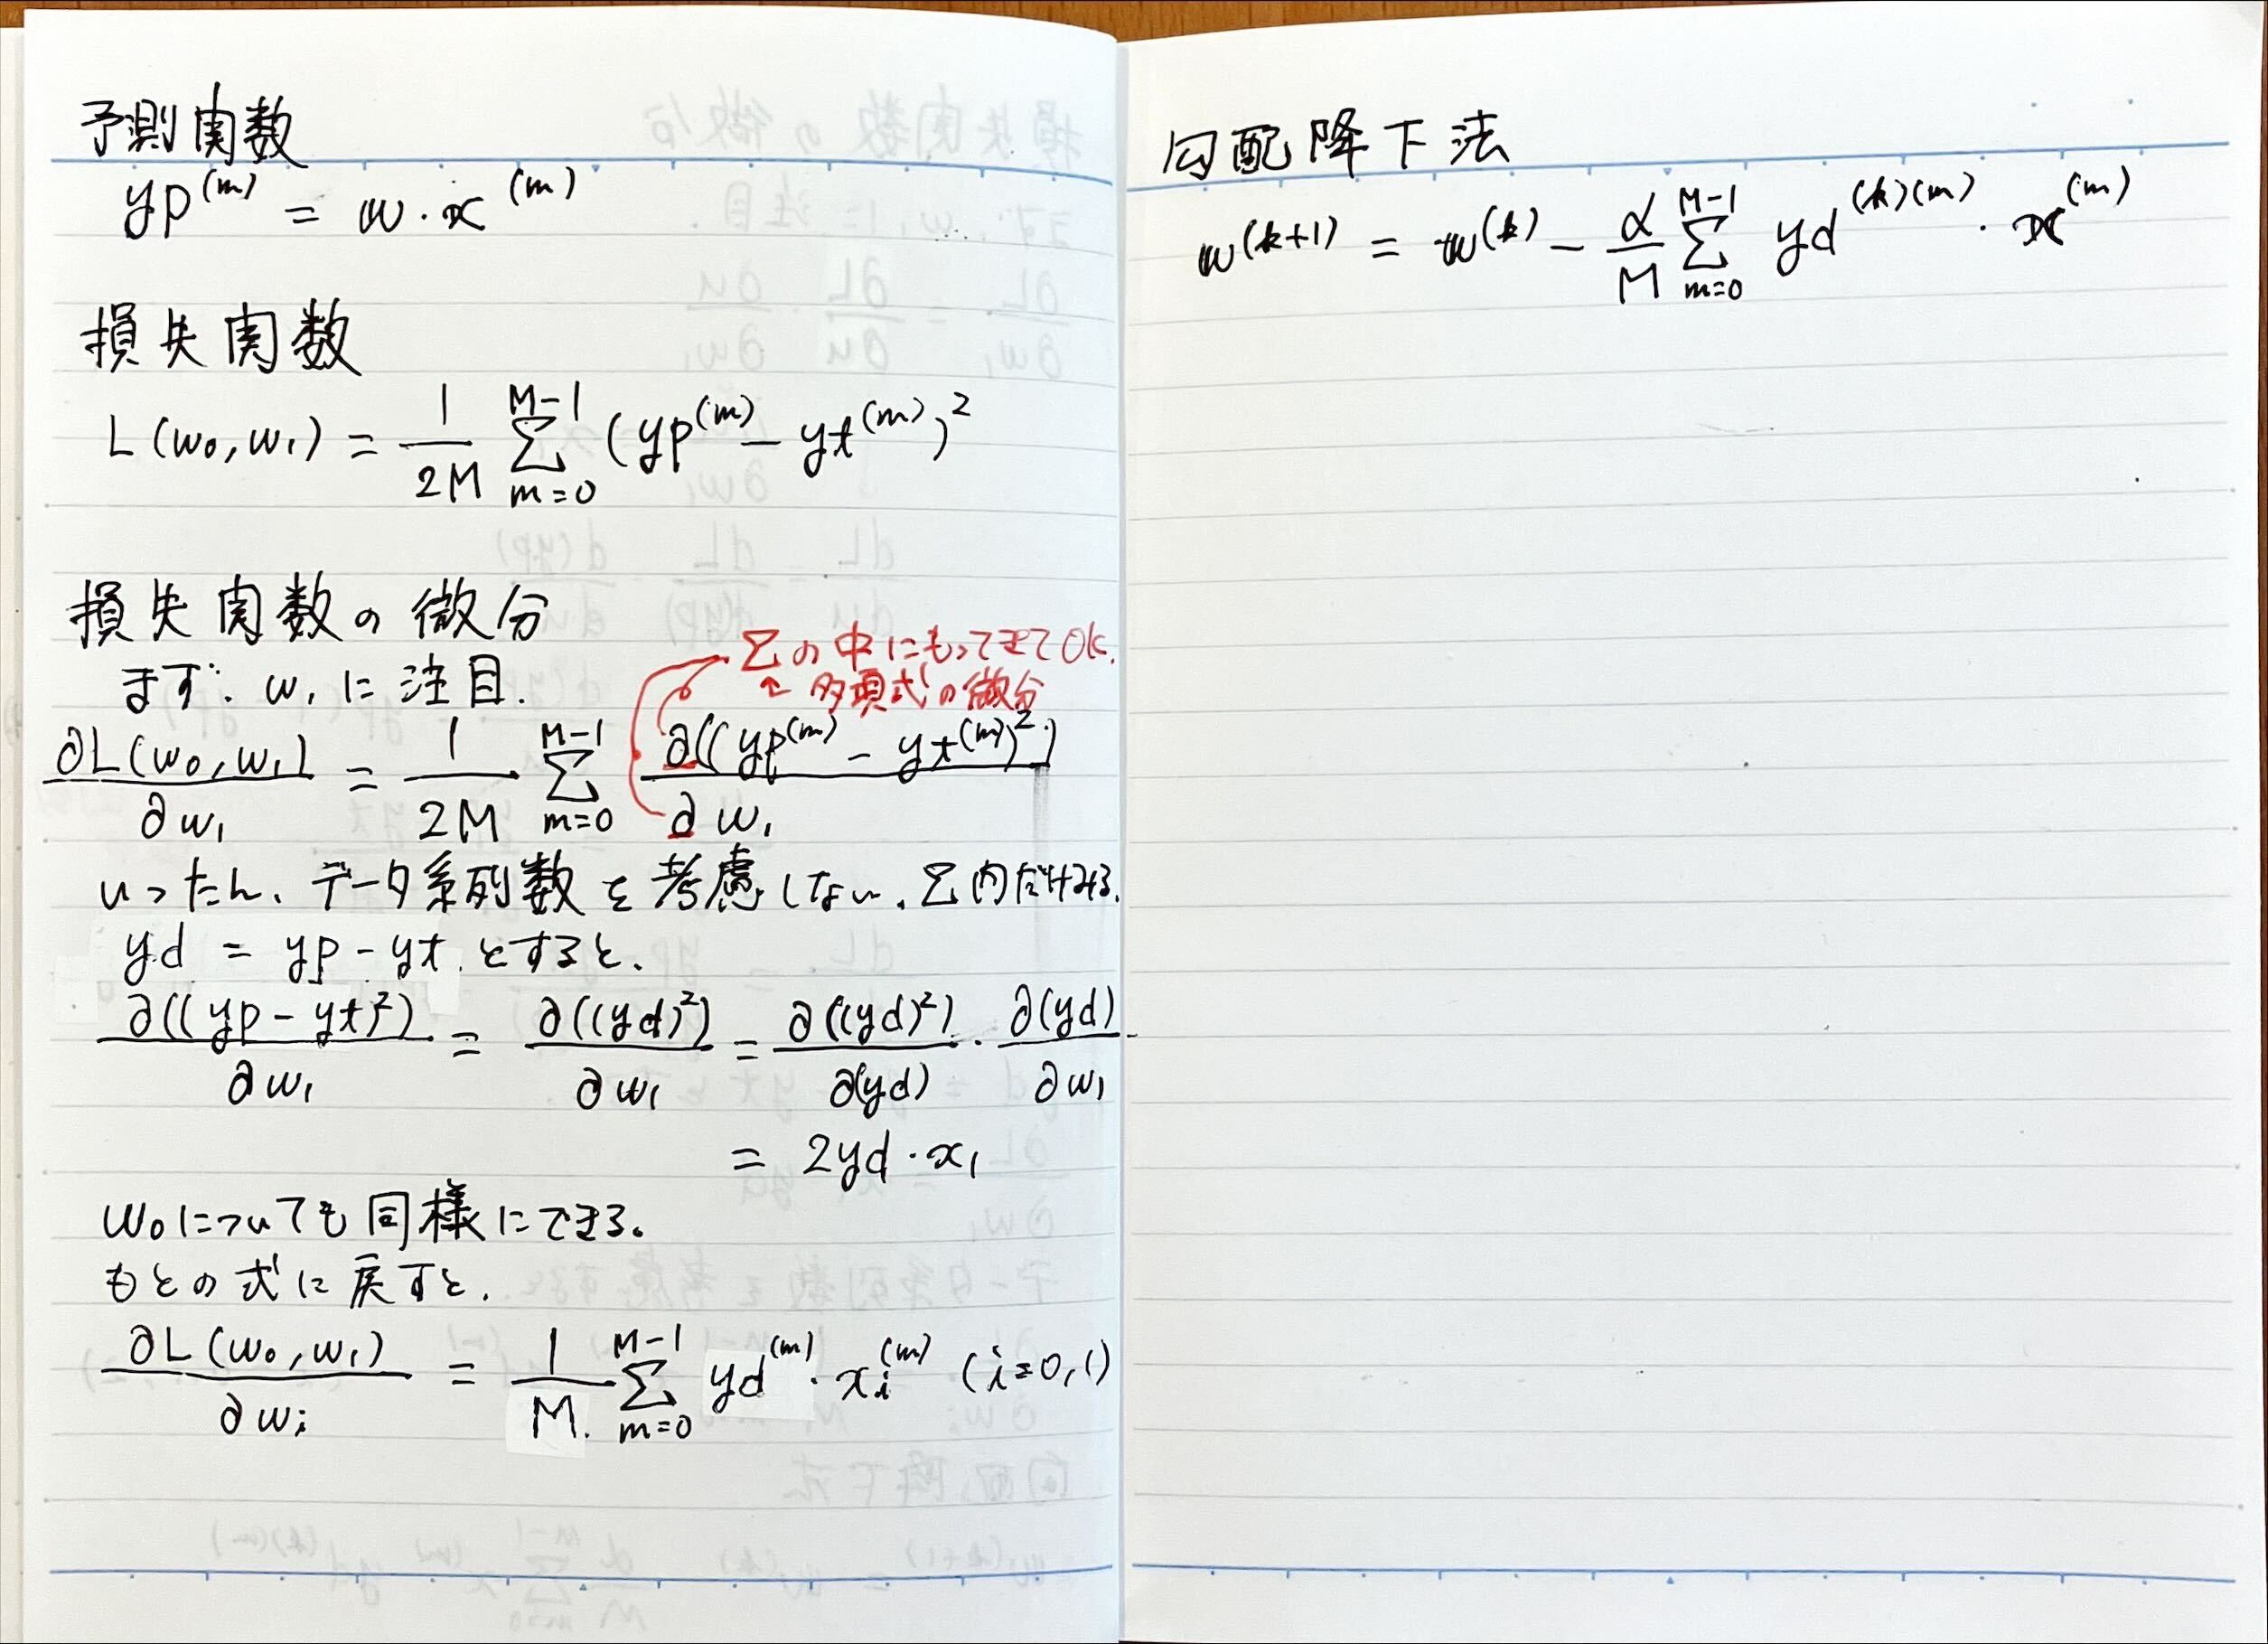 予測関数
yp^(m) = w・x^(m)
損失関数
L(w₀,w₁) = 1/2M Σ_{m=0}^{M-1} (yp^(m) - yt^(m))²
損失関数の微分
まず、w₁に注目.
Σの中にもってきてOK.
↑多項式の微分
∂L(w₀,w₁)/∂w₁ = 1/2M Σ_{m=0}^{M-1} ∂((yp^(m) - yt^(m))²)/∂w₁
いったん、データ系列数を考慮しない.Σ内だけみる.
yd = yp - yt.とすると、
∂((yp - yt)²)/∂w₁ = ∂((yd)²)/∂w₁ = ∂((yd)²)/∂(yd)・∂(yd)/∂w₁
= 2yd・x₁
w₀についても同様にできる.
もとの式に戻すと.
∂L(w₀,w₁)/∂wᵢ = 1/M Σ_{m=0}^{M-1} yd^(m)・xᵢ^(m) (i=0,1)
勾配降下法
w^(k+1) = w^(k) - α/M Σ_{m=0}^{M-1} yd^(k)(m)・x^(m)